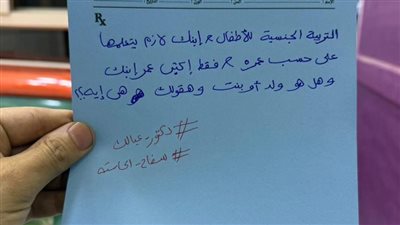 Rx
التربية الجنسية للأطفال م إبنك لازم يتعلمها
على حسب عمره م فقط إكتبي عمر إبنك
وهل هو ولد أو بنت وهقولك هي إيه؟!
#دكتور_عيالك